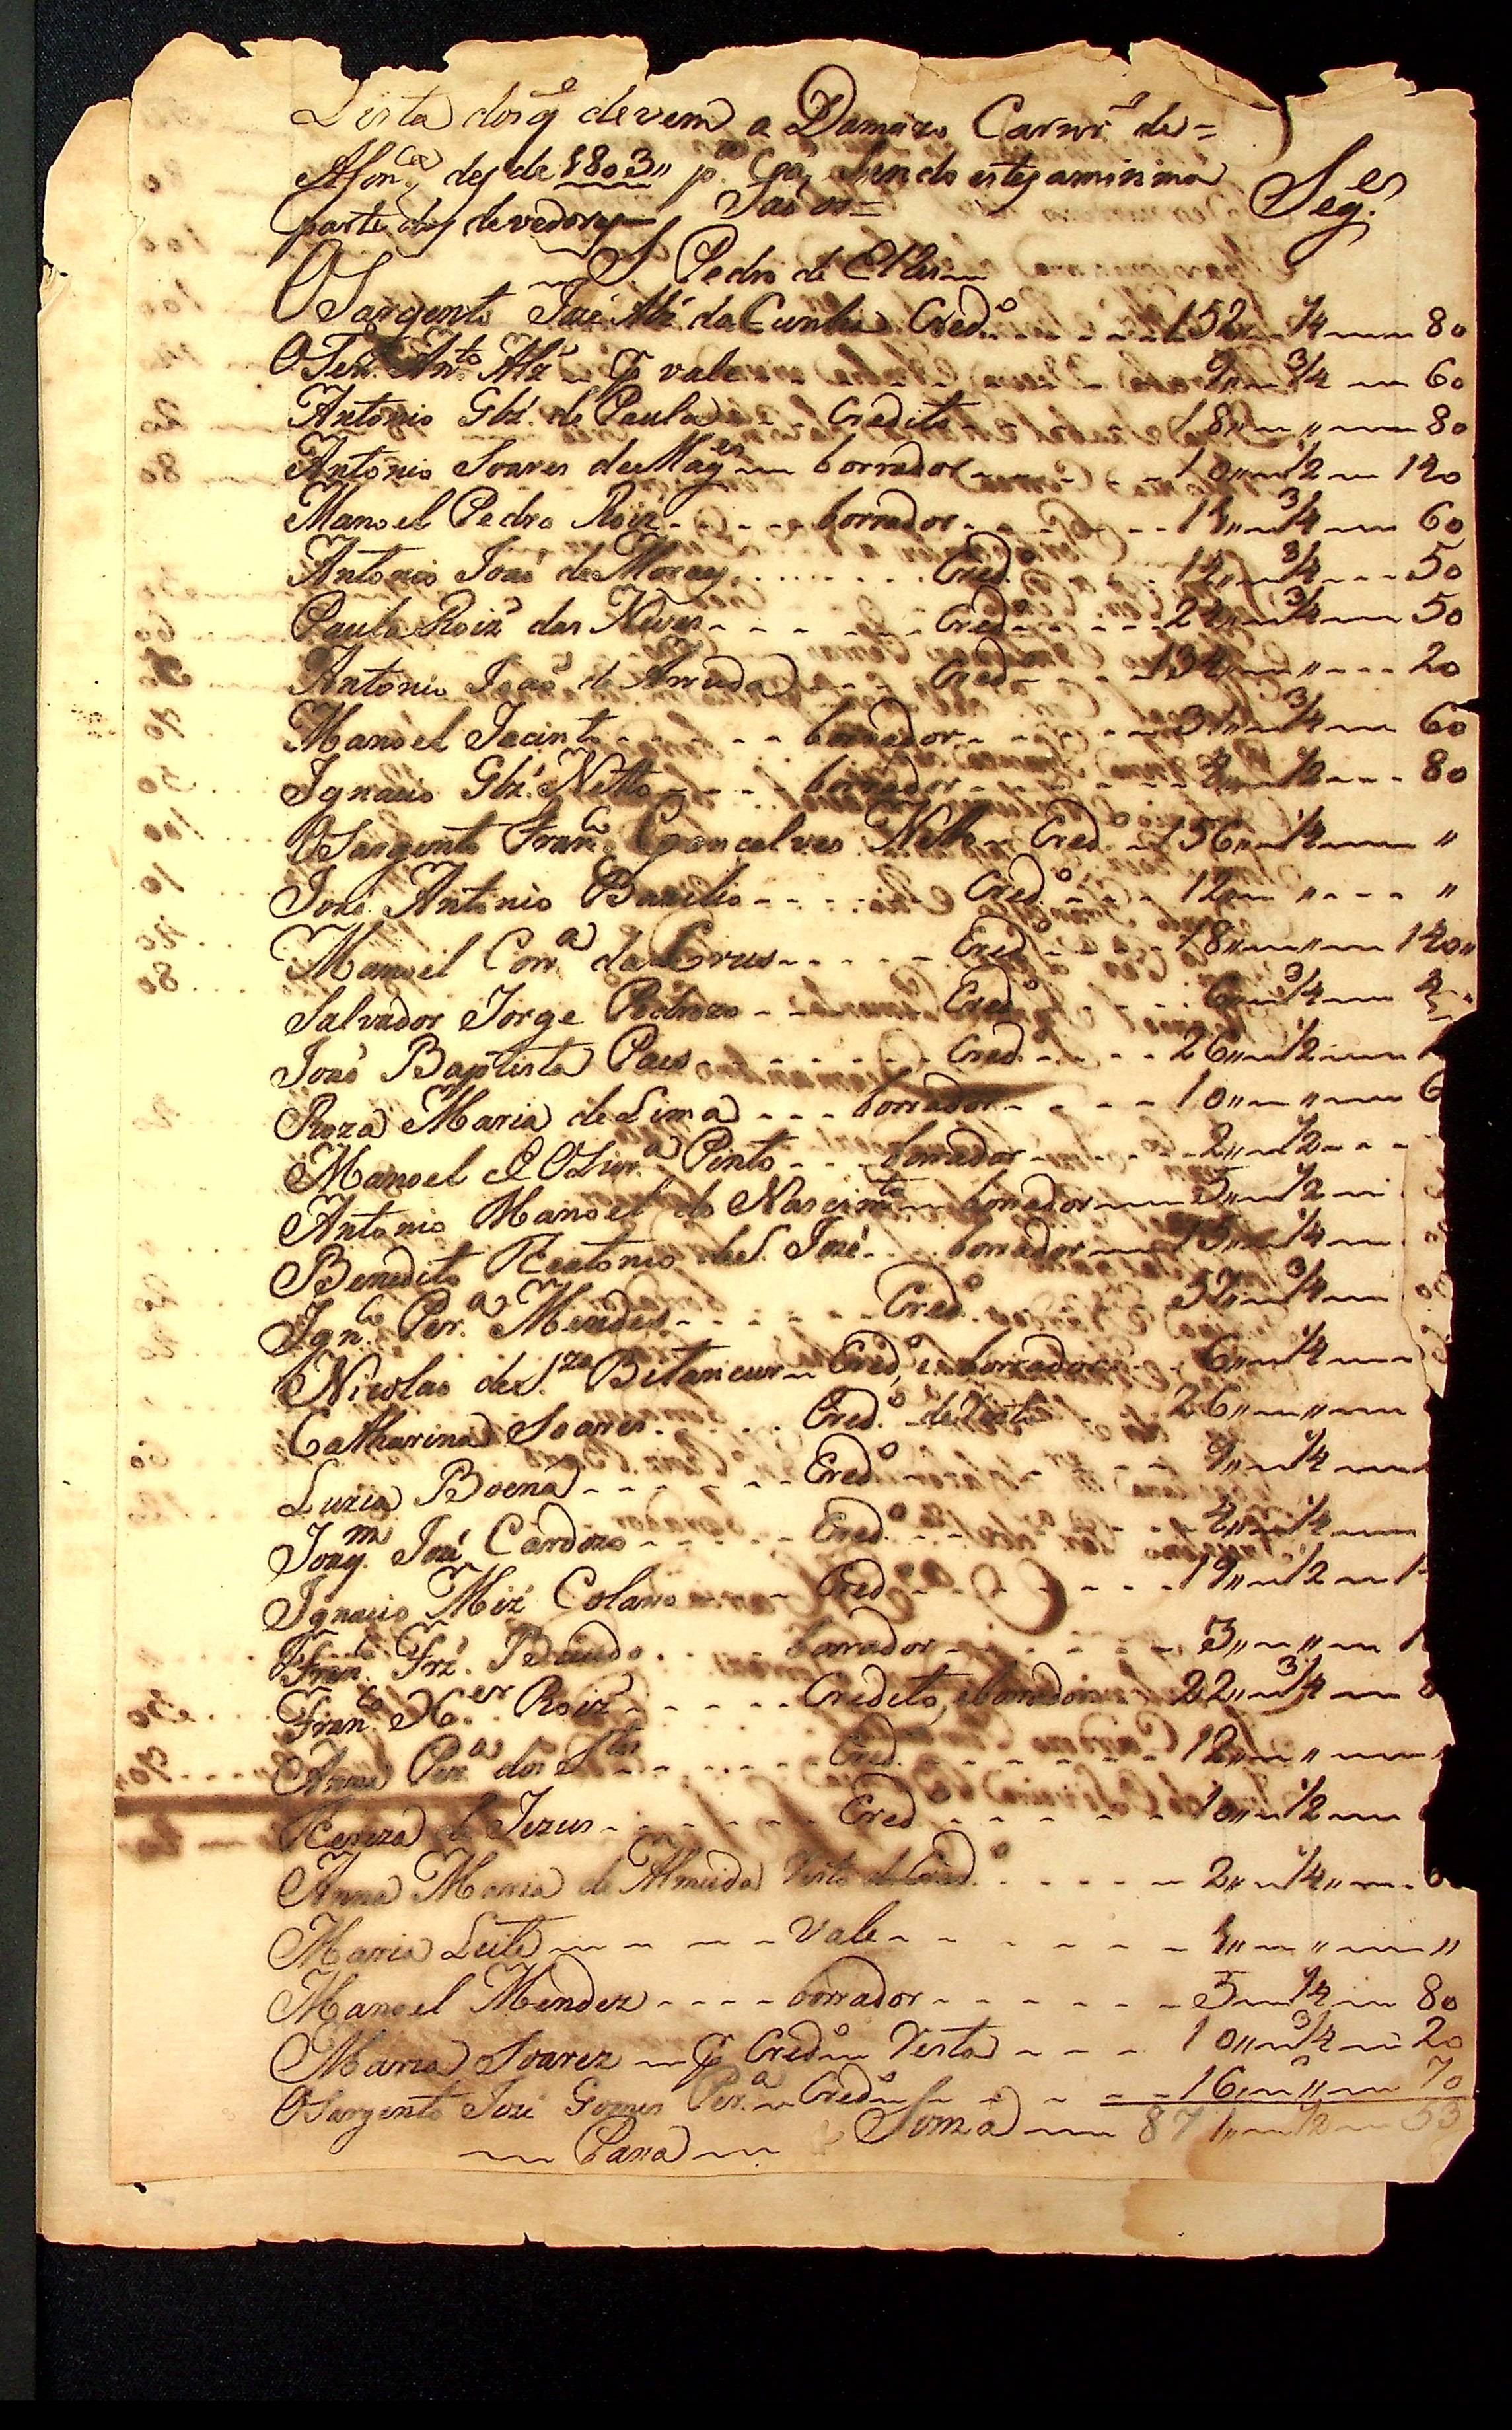 Lista dos q̃ devem a Damazo Carnr.º de =
Afonc.ca des de 1803,, p.a Cá, Sendo estes a minima
parte dos devedores Saõ os = Seg.es
S. Pedro de ElRei
O Sargento José Alz' da Cunha Cred.º 152,, 1/4 80
O Ten.e An.to Alz' P vale 9,, 3/4 60
Antonio Glz'. de Paula Credito 18,, ,, 80
Antonio Soares de Mag.es borrador 10,, 1/2 140
Manoel Pedro Roiz' borrador 14,, 3/4 60
Antonio José de Moraes Cred.º 14,, 3/4 50
Paula Roiz' das Neves Cred.º 24,, 3/4 50
Antonio João de Arruda Cred.º 134,, ,, 20
Manoel Jacinto borrador 34,, 3/4 60
Ignacio Glz'. Netto borrador 4,, 1/2 80
O Sargento Fran.co Goncalves Netto Cred.º 156,, 1/4 ,,
José Antonio Bazilio Cred.º 12,, ,, ,,
Manoel Corr.a da Crus Cred.º 18,, ,, 140,,
Salvador Jorge Pedrozo Cred.º 6,, 3/4
José Baptista Paes Cred.º 26,, 1/2
Roza Maria de Lima borrador 10,, ,, 6
Manoel de Olivr.a Pinto borrador 2,, 1/2
Antonio Manoel do Nascim.to borrador 5,, 1/2
Benedito Teotonio de S. José borrador 15,, 1/4
Ign.co Per.a Mendes Cred.º 52,, 3/4
Nicolao de S.za Betancur Cred.º, e borrador 6,, 1/4
Catharina Soares Cred.º de Testa 26,, ,,
Luzia Boena Cred.º 9,, 1/4
Joaq.m José Cardozo Cred.º 4,, 1/4
Ignacio Miz' Colaço Cred.º 19,, 1/2 1
Fran.co Frz'. Bicudo borrador 3,, ,, 1
Fran.co X.er Roiz' Credito, e borrador 22,, 3/4 8
Anna Per.a dos S.tos Cred.º 12,, ,,
Tereza de Jezus Cred.º 10,, 1/2
Anna Maria de Almeida Testa de Cred.º 2,, 1/4,,
Maria Leite Vale 4,, ,, ,,
Manoel Mendez borrador 5 1/4 80
Maria Soarez P Cred.º Testa 10,, 3/4 20
O Sargento José Gomes Per.a Cred.º 16,, ,, 70
Para Soma 871,, 1/2 53